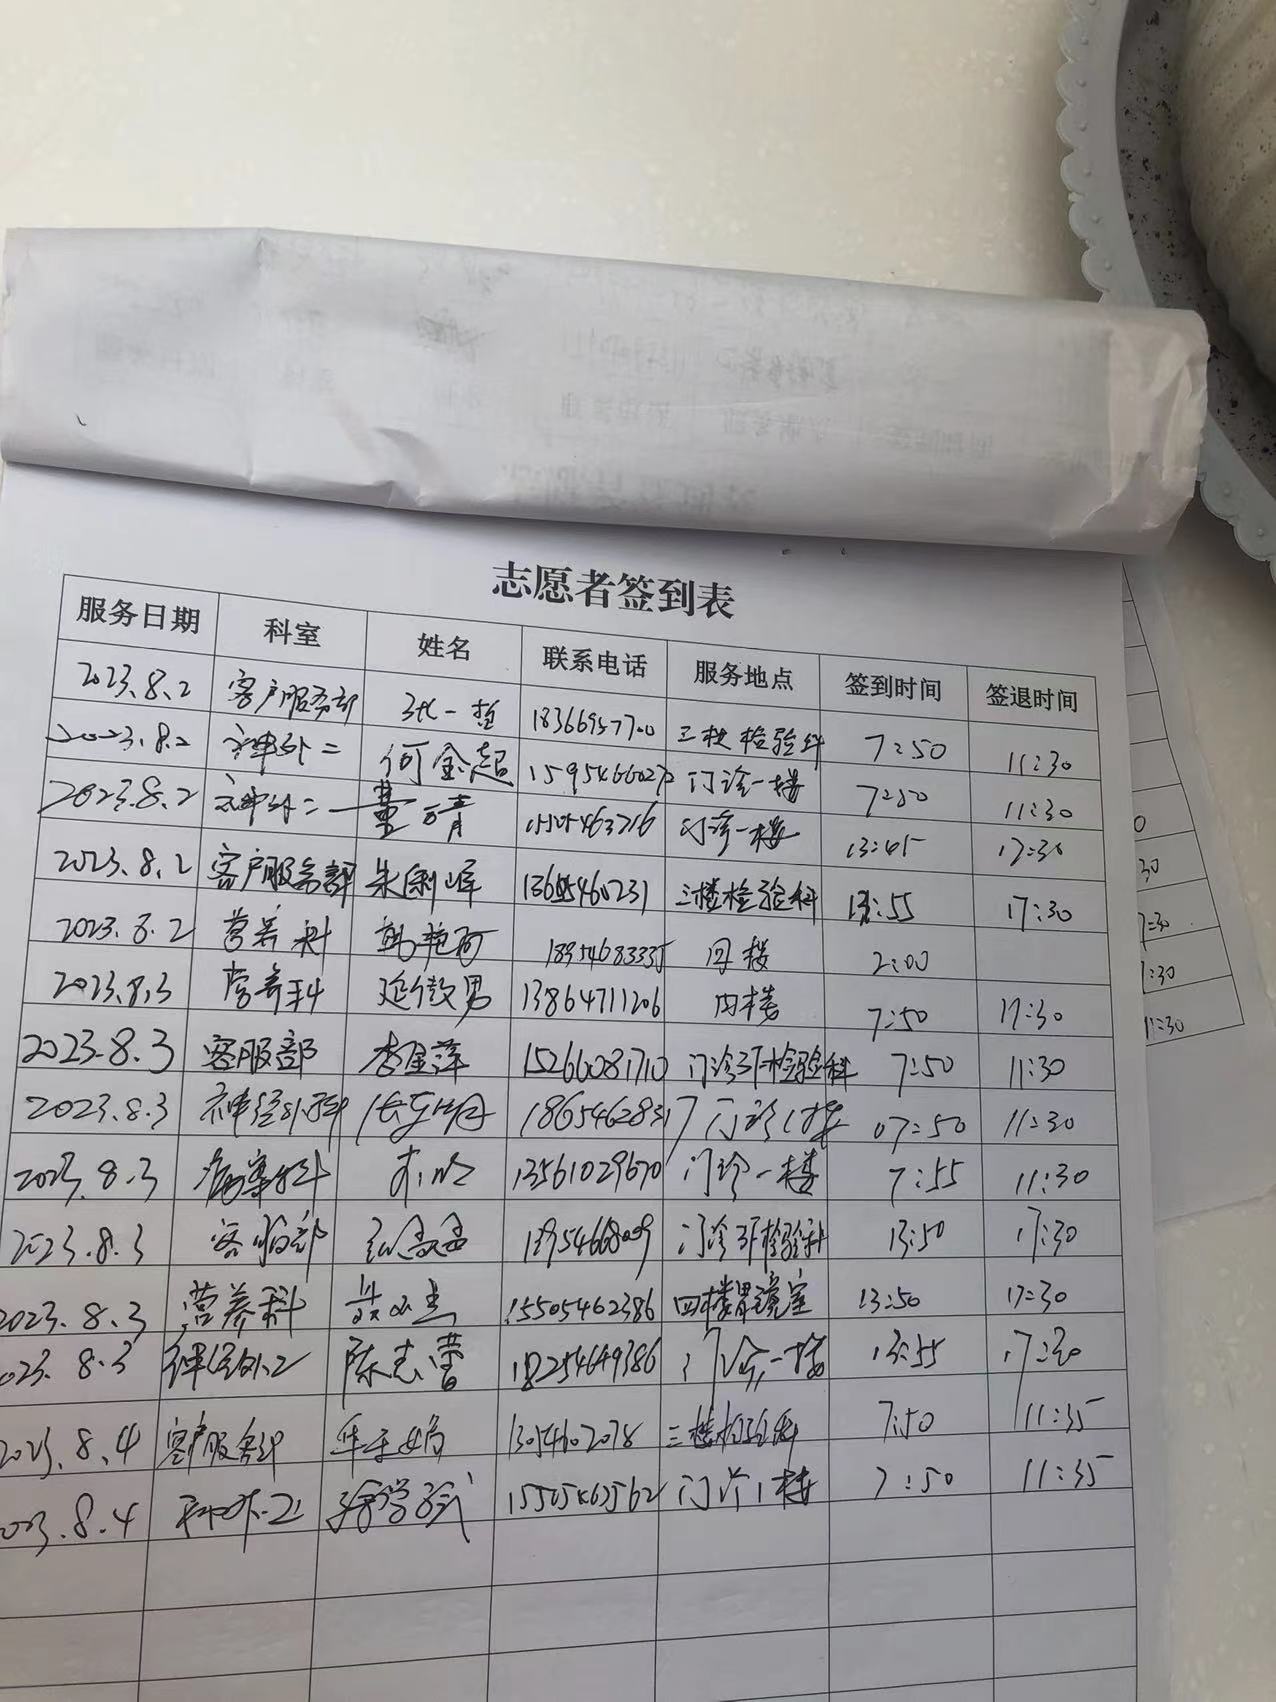 志愿者签到表
服务日期 科室 姓名 联系电话 服务地点 签到时间 签退时间
2023.8.2 客户服务部 18366957700 三楼检验科 7:50 11:30
2023.8.2 神外二 何金超 15954660272 门诊一楼 7:50 11:30
2023.8.2 神外二 董万青 15505463216 门诊一楼 13:45 17:30
2023.8.2 客户服务部 三楼检验科 13:55 17:30
2023.8.2 营养科 18954683335 四楼 2:00
2023.8.3 营养科 延俊男 13864711206 四楼 7:50 17:30
2023.8.3 客服部 李金萍 15266081710 门诊3F检验科 7:50 11:30
2023.8.3 神经外科 18654628317 门诊1楼 07:50 11:30
2023.8.3 病案科 13561029670 门诊一楼 7:55 11:30
2023.8.3 客服部 门诊3F检验科 13:50 17:30
2023.8.3 营养科 15505462386 四楼胃镜室 13:50 17:30
023. 8.3 神经外二 陈志蕾 18254649386 门诊一楼 13:55 17:30
2023.8.4 客户服务部 13054602078 三楼检验科 7:50 11:35
023.8.4 神外二 15505462562 门诊1楼 7:50 11:35
0
:30
7:30
1:30
11:30